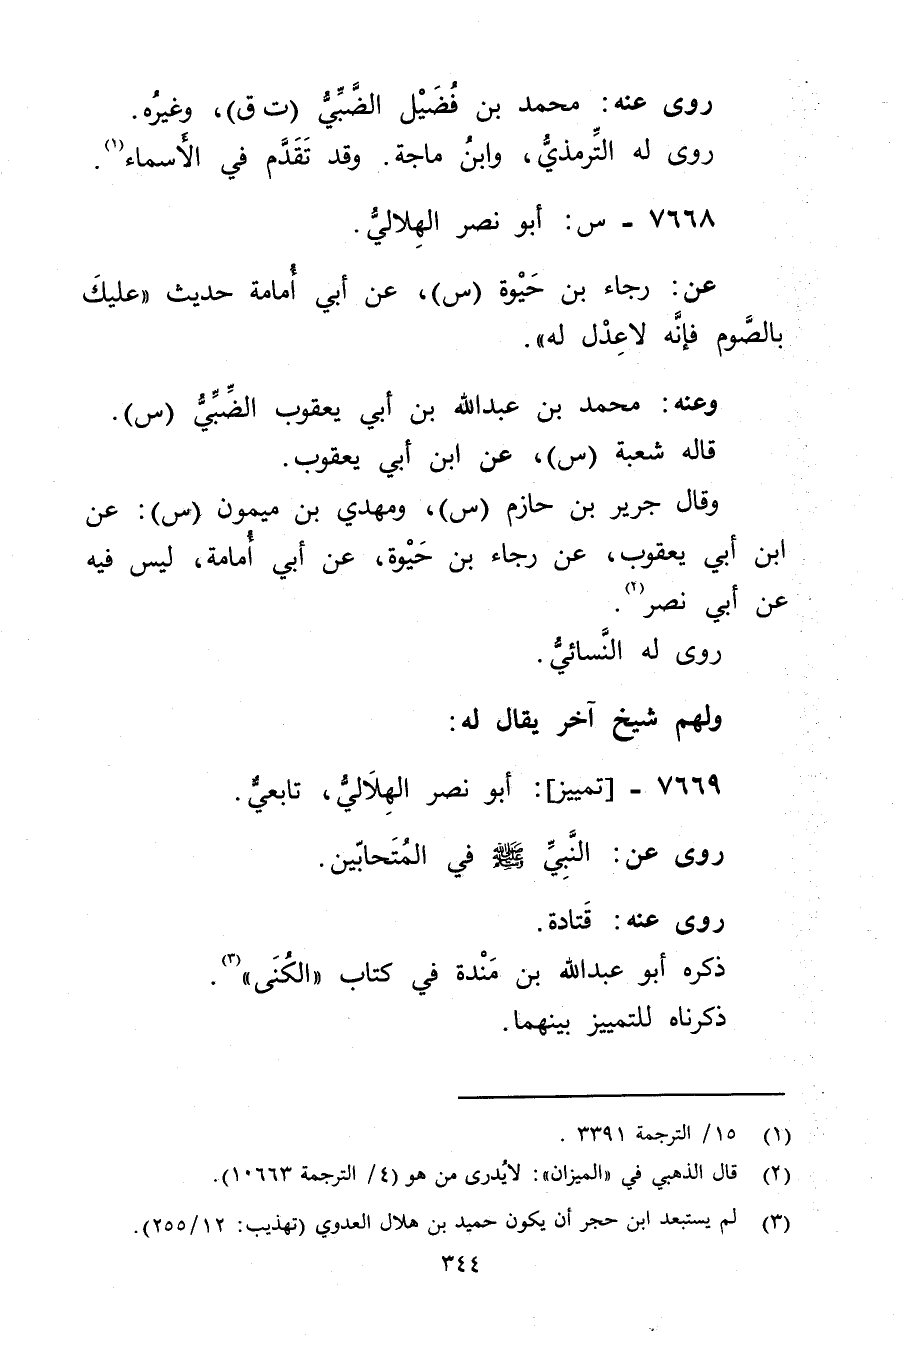 روى عنه: محمد بن فُضَيْل الضَّبِّيُّ (ت ق)، وغيرُه.
روى له التِّرمذيُّ، وابنُ ماجة. وقد تَقَدَّم في الأَسماء(١).
٧٦٦٨ ـ س: أبو نصر الهِلاليُّ.
عن: رجاء بن حَيْوة (س)، عن أبي أُمامة حديث «عليكَ
بالصَّوم فإنَّه لاعِدْل له».
وعنه: محمد بن عبدالله بن أبي يعقوب الضِّبِّيُّ (س).
قاله شعبة (س)، عن ابن أبي يعقوب.
وقال جرير بن حازم (س)، ومهدي بن ميمون (س): عن
ابن أبي يعقوب، عن رجاء بن حَيْوة، عن أبي أُمامة، ليس فيه
عن أبي نصر(٢).
روى له النَّسائيُّ.
ولهم شيخ آخر يقال له:
٧٦٦٩ ـ [تمييز]: أبو نصر الهِلَاليُّ، تابعيٌّ.
روى عن: النَّبِيِّ ﷺ في المُتَحابّين.
روى عنه: قَتادة.
ذكره أبو عبدالله بن مَنْدة في كتاب «الكُنَى»(٣).
ذكرناه للتمييز بينهما.
(١) ١٥/ الترجمة ٣٣٩١ .
(٢) قال الذهبي في «الميزان»: لايُدرى من هو (٤/ الترجمة ١٠٦٦٣).
(٣) لم يستبعد ابن حجر أن يكون حميد بن هلال العدوي (تهذيب: ٢٥٥/١٢).
٣٤٤